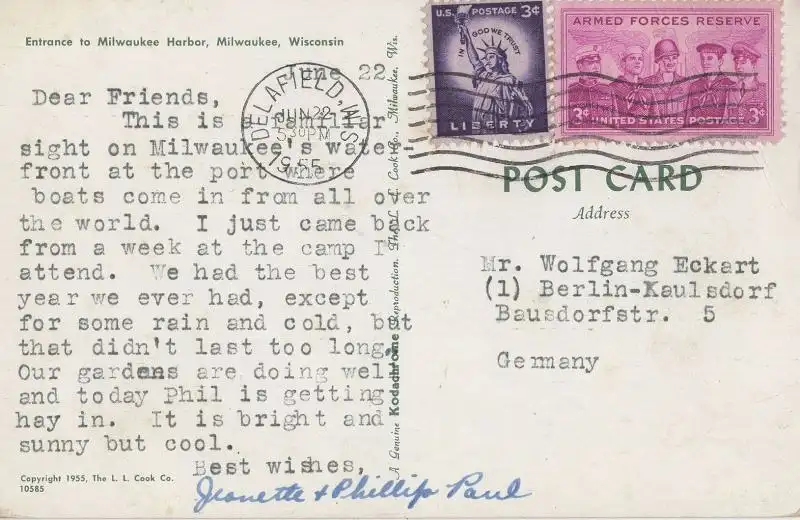 Entrance to Milwaukee Harbor, Milwaukee, Wisconsin
June 22
Dear Friends,
This is a familiar
sight on Milwaukee's water-
front at the port where
boats come in from all over
the world. I just came back
from a week at the camp I
attend. We had the best
year we ever had, except
for some rain and cold, but
that didn't last too long.
Our gardens are doing well
and today Phil is getting
hay in. It is bright and
sunny but cool.
Best wishes,
Jeanette & Phillip Paul
Copyright 1955, The L. L. Cook Co.
10585
A Genuine Kodachrome Reproduction. The L. L. Cook Co., Milwaukee, Wis.
DELAFIELD, WIS.
JUN 22
530PM
1955
U.S. POSTAGE 3¢
IN GOD WE TRUST
LIBERTY
ARMED FORCES RESERVE
3¢ UNITED STATES POSTAGE 3¢
POST CARD
Address
Mr. Wolfgang Eckart
(1) Berlin-Kaulsdorf
Bausdorfstr. 5
Germany